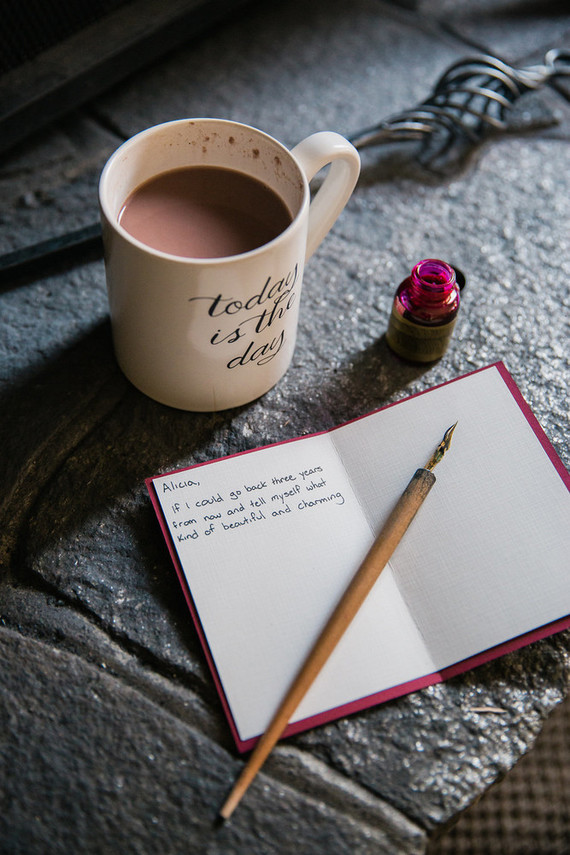 today
is the
day
Alicia,
If I could go back three years
from now and tell myself what
kind of beautiful and charming